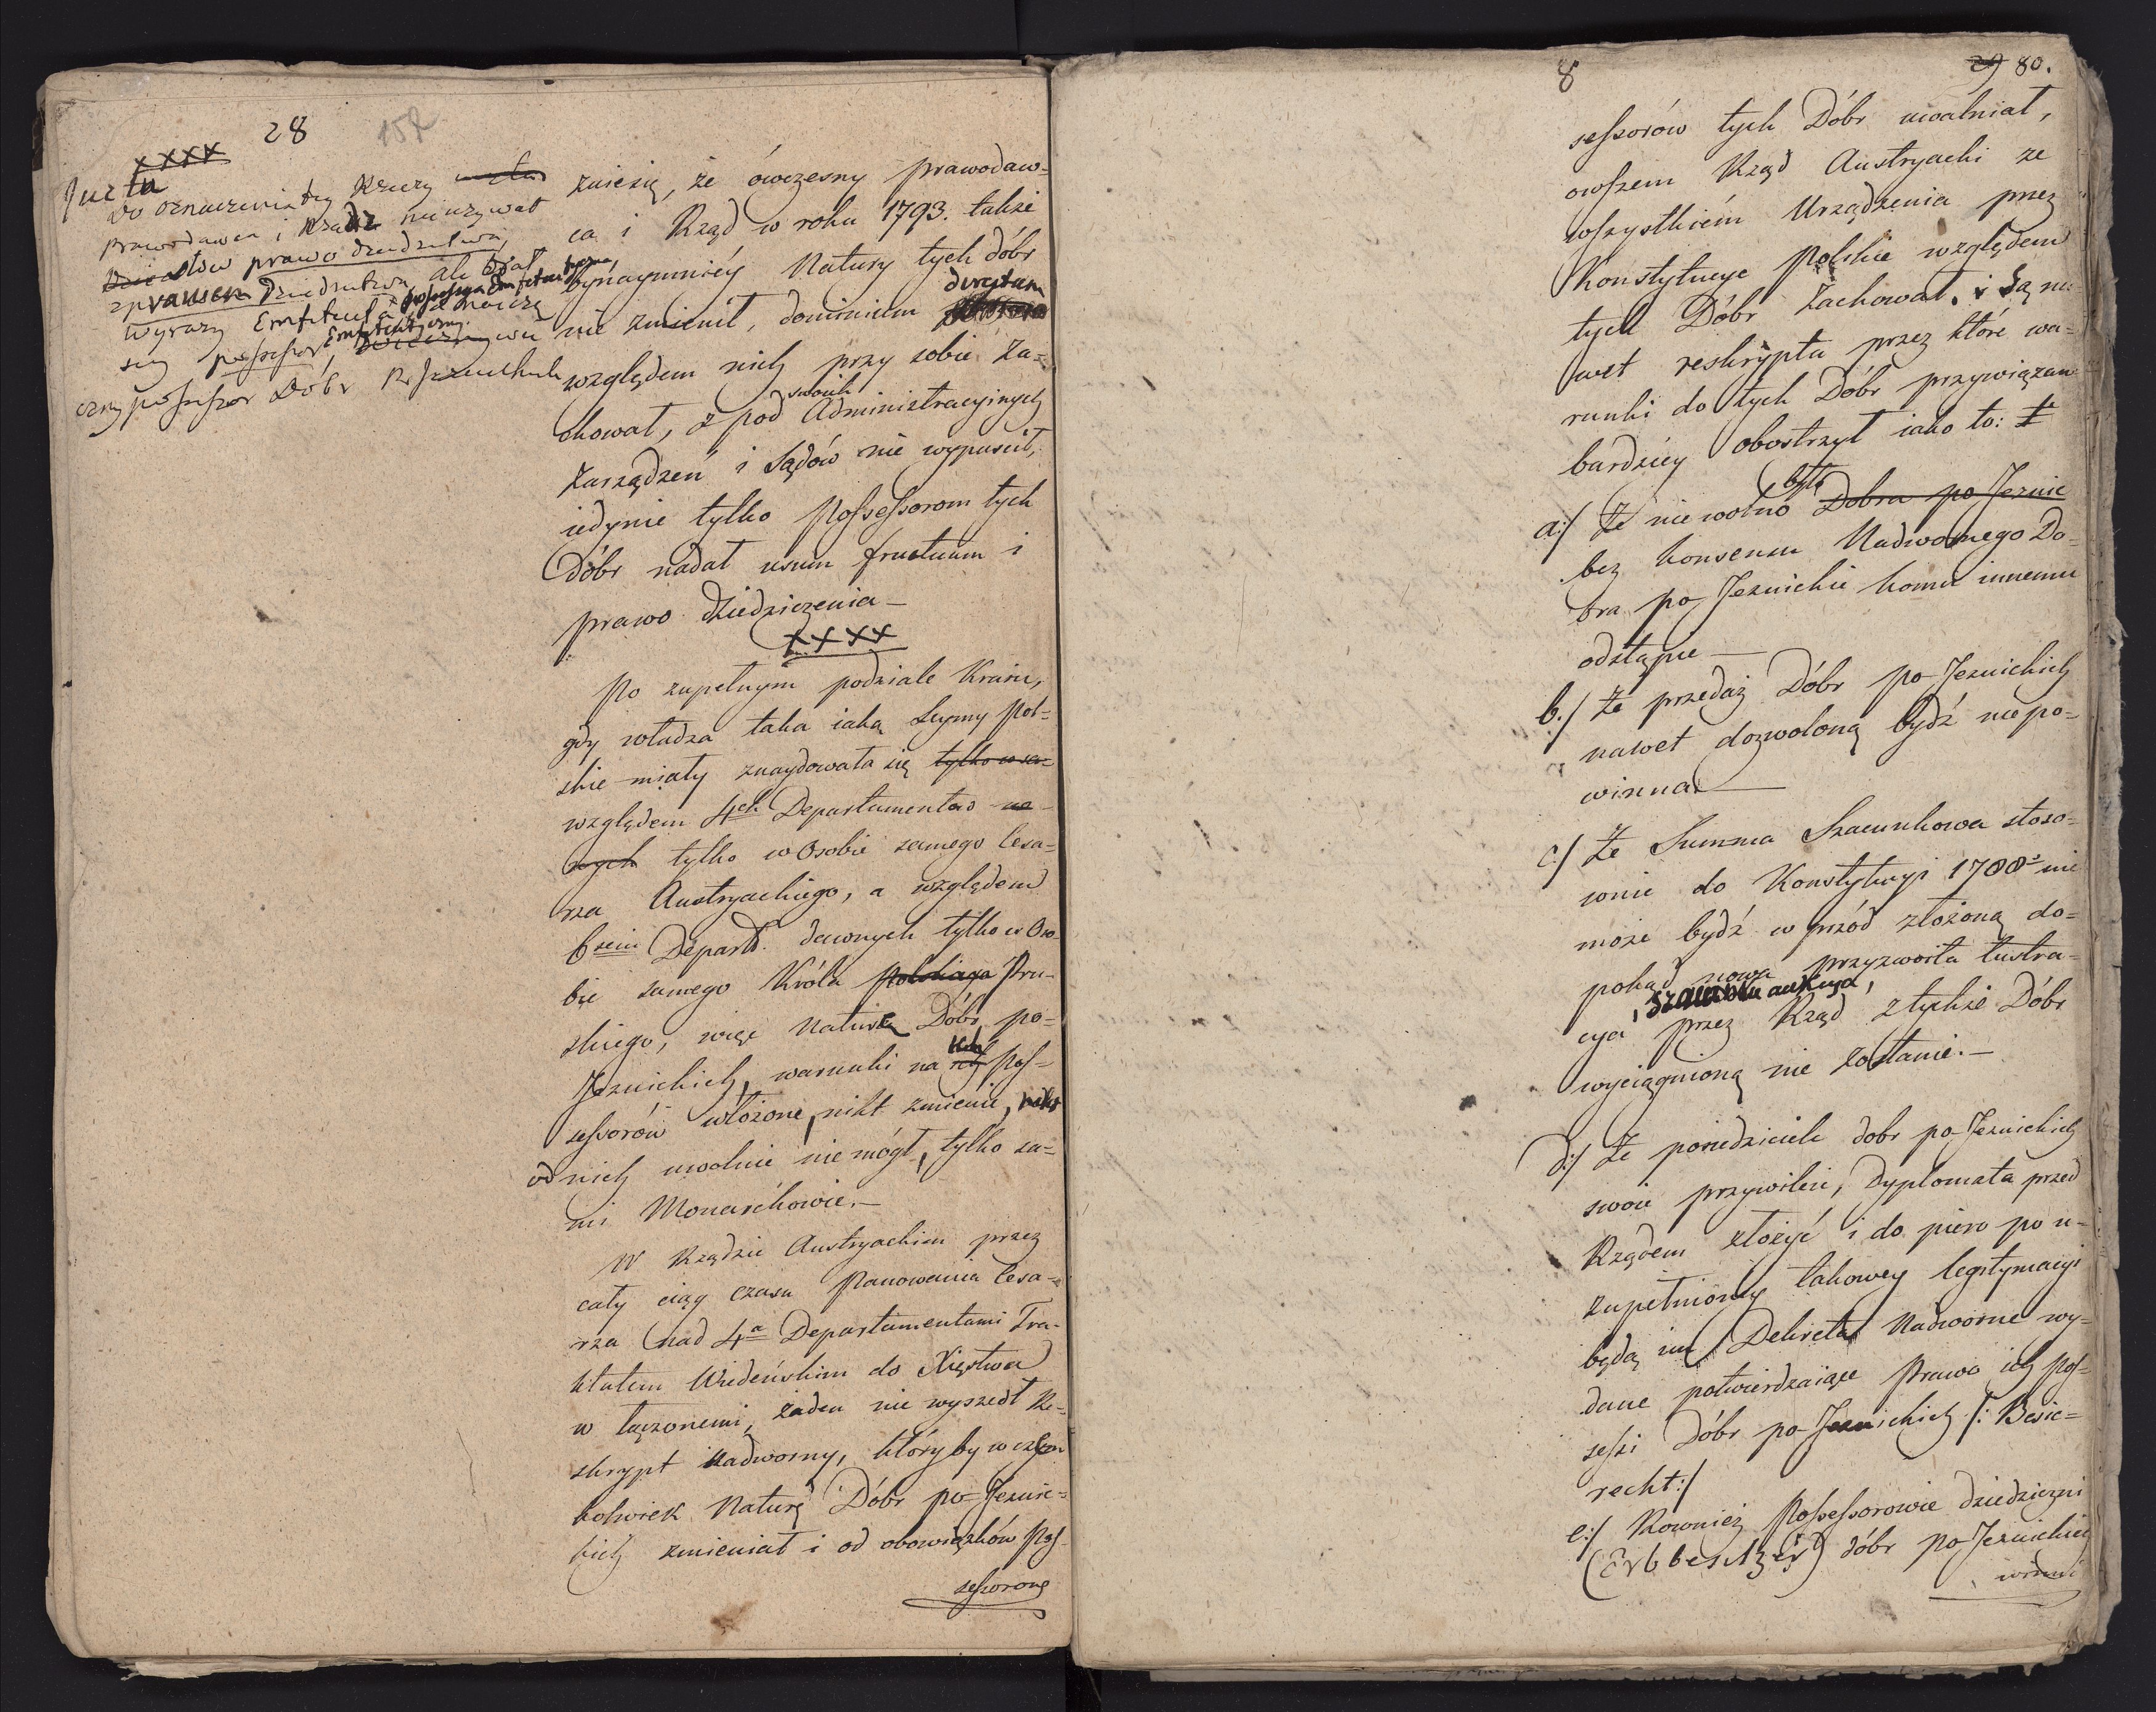 28
157
xxxx
Juzta
do oznaczenia tey Rzeczy
Prawodawca i Rząd nie używał
słów prawo dziedzictwa,
z prawem Dziedzictwa, ale brał
wyrazy Emfiteuta, possessya Emfiteutyczna,
possessor Emfiteutyczny,
czny possessor Dóbr
znieśę, że ówczesny prawodaw=
ca i Rząd w roku 1793. także
bynaymniéy Natury tych dóbr
nie zmienił, dominium directum
względem nich przy sobie za=
chował, z pod swoich Administracyinych
Zarządzeń i Sądów nie wypuścił,
iedynie tylko Possessorom tych
Dóbr nadał usum fructuum i
prawo dziedziczenia—
xxxx
Po zupełnym podziale Kraiu,
gdy władza taka iaką Seymy Pol=
skie miały znaydowała się tylko w sa=
względem 4ch Departamentów no=
wych tylko w Osobie samego Cesa=
rza Austryackiego, a względem
6ciu Depart. dawnych tylko w Oso=
bie samego Króla Polskiego Pru=
skiego, więc naturę Dóbr po=
Jezuickich, warunki na ich Pos=
sessorów włożone, nikt zmienić, nikt
od nich uwolnić nie mógł, tylko sa=
mi Monarchowie.—
W Rządzie Austryackim przez
cały ciąg czasu Panowania Cesa=
rza nad 4a Departamentami Tra=
ktatem Wiedeńskim do Xięstwa
w łączonemi, żaden nie wyszedł Re=
skrypt Nadworny, który by w czem
kolwiek Naturę Dóbr po-Jezuic=
kich zmieniał i od obowiązków Pos=
sessorow
8
29 80.
sessorów tych Dóbr uwalniał,
owszem Rząd Austryacki ze
wszystkiém Urządzenia przez
Konstytucye Polskie względem
tych Dóbr Zachował. i Są na=
wet reskrypta przez które wa=
runki do tych Dóbr przywiązane
bardziey obostrzył iako to:
a:/ Że nie wolno było Dobra po Jezuic
bez konsensu Nadwornego Do=
bra po Jezuickie komu innemu
odstąpić—
b:/ Że przedaż Dóbr po-Jezuickich
nawet dozwoloną bydź niepo=
winna—
c:/ Że Summa Szacunkowa stoso=
wnie do Konstytucyi 1788 nie
może bydź w przód złożoną do=
pokąd nowa przyzwoita lustra=
cya, przez Rząd z tychże Dóbr
wyciągnioną nie zostanie.—
d:/ Że posiedziciele dobr po-Jezuickich
swoie przywileie, Dyplomata przed
Rządem złożyć i do piero po u=
zupełnioney takowey legitymacyi
będą im Dekreta Nadworne wy=
dane potwierdzaiące Prawo ich Pos=
sessi Dóbr po-Jezuickich /: Besic=
recht:/
e:/ Rownież Possessorowie dziedziczni
(Erbbesitzer) dóbr po Jezuickich
winni